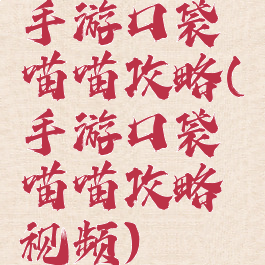 手游口袋
喵喵攻略(
手游口袋
喵喵攻略
视频)